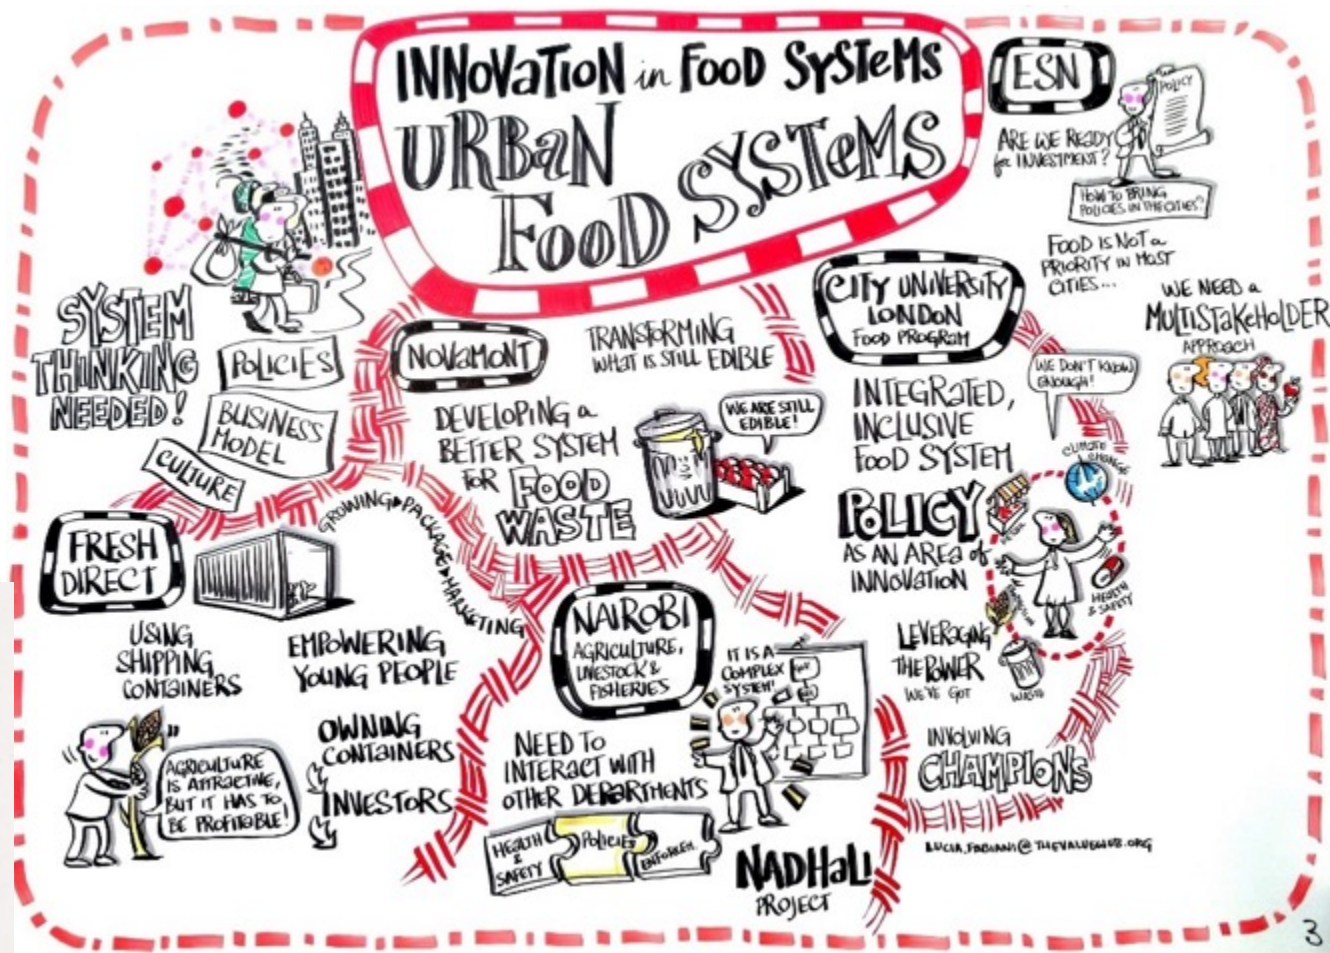 INNOVATION in FOOD SYSTEMS
URBAN
FOOD SYSTEMS
ESN
POLICY
ARE WE READY
for INVESTMENT?
HOW TO BRING
POLICIES IN THE CITIES?
FOOD IS NOT a
PRIORITY IN MOST
CITIES...
WE NEED a
MULTISTAKEHOLDER
APPROACH
SYSTEM
THINKING
NEEDED!
POLICIES
BUSINESS
MODEL
CULTURE
NOVAMONT
TRANSFORMING
WHAT IS STILL EDIBLE
DEVELOPING a
BETTER SYSTEM
FOR FOOD
WASTE
WE ARE STILL
EDIBLE!
CITY UNIVERSITY
LONDON
FOOD PROGRAM
WE DON'T KNOW
ENOUGH!
INTEGRATED,
INCLUSIVE
FOOD SYSTEM
POLICY
AS AN AREA of
INNOVATION
CLIMATE
CHANGE
HEALTH
& SAFETY
WASTE
LEVERAGING
THE POWER
WE'VE GOT
INVOLVING
CHAMPIONS
LUCIA.FABIANI@THEVALUEWEB.ORG
FRESH
DIRECT
GROWING PACKAGE MARKETING
USING
SHIPPING
CONTAINERS
EMPOWERING
YOUNG PEOPLE
AGRICULTURE
IS ATTRACTIVE,
BUT IT HAS TO
BE PROFITABLE!
OWNING
CONTAINERS
INVESTORS
NAIROBI
AGRICULTURE,
LIVESTOCK &
FISHERIES
IT IS A
COMPLEX
SYSTEM!
NEED TO
INTERACT WITH
OTHER DEPARTMENTS
HEALTH
&
SAFETY
POLICIES
NADHALI
PROJECT
3